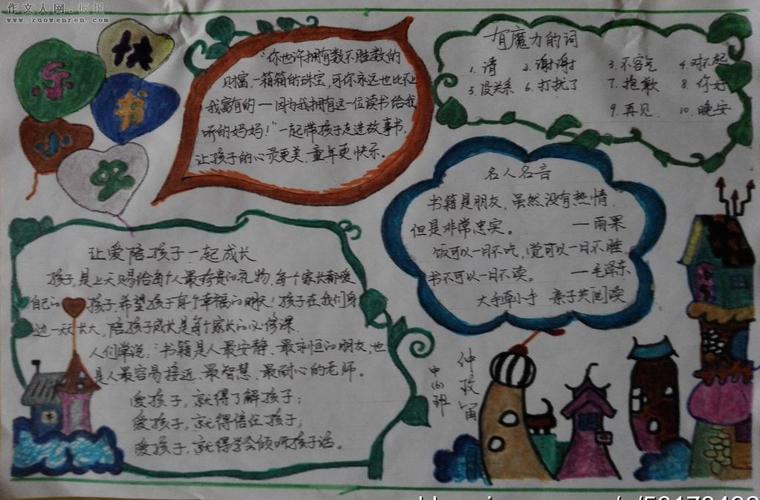 作文人网
www.zuowenren.com
快
乐
书
小
"你也许拥有数不胜数的
财富,一箱箱的珠宝,可你永远也比不上
我富有的一因为我拥有这一位读书给我
听的妈妈!"一起带孩子走进故事书,
让孩子的心灵更美,童年更快乐。
有魔力的词
1. 请 2. 谢谢 3. 不客气 4. 对不起
5. 没关系 6. 打扰了 7. 抱歉 8. 你好
9. 再见 10. 晚安
名人名言
书籍是朋友,虽然没有热情,
但是非常忠实。 ——雨果
饭可以一日不吃,觉可以一日不睡
书不可以一日不读。 ——毛泽东
大手牵小手 亲子共阅读
让爱陪孩子一起成长
孩子是上天赐给每个人最珍贵的礼物,每个家长都爱
自己的孩子,希望孩子每个幸福的 孩子在我们身
边一天天长大,陪孩子成长是每个家长的必修课。
人们常说:"书籍是人最安静、最永恒的朋友,也
是人最容易接近、最智慧、最耐心的老师。
爱孩子,就得了解孩子;
爱孩子,就得信任孩子;
爱孩子,就得学会倾听孩子话。
中四班
仲